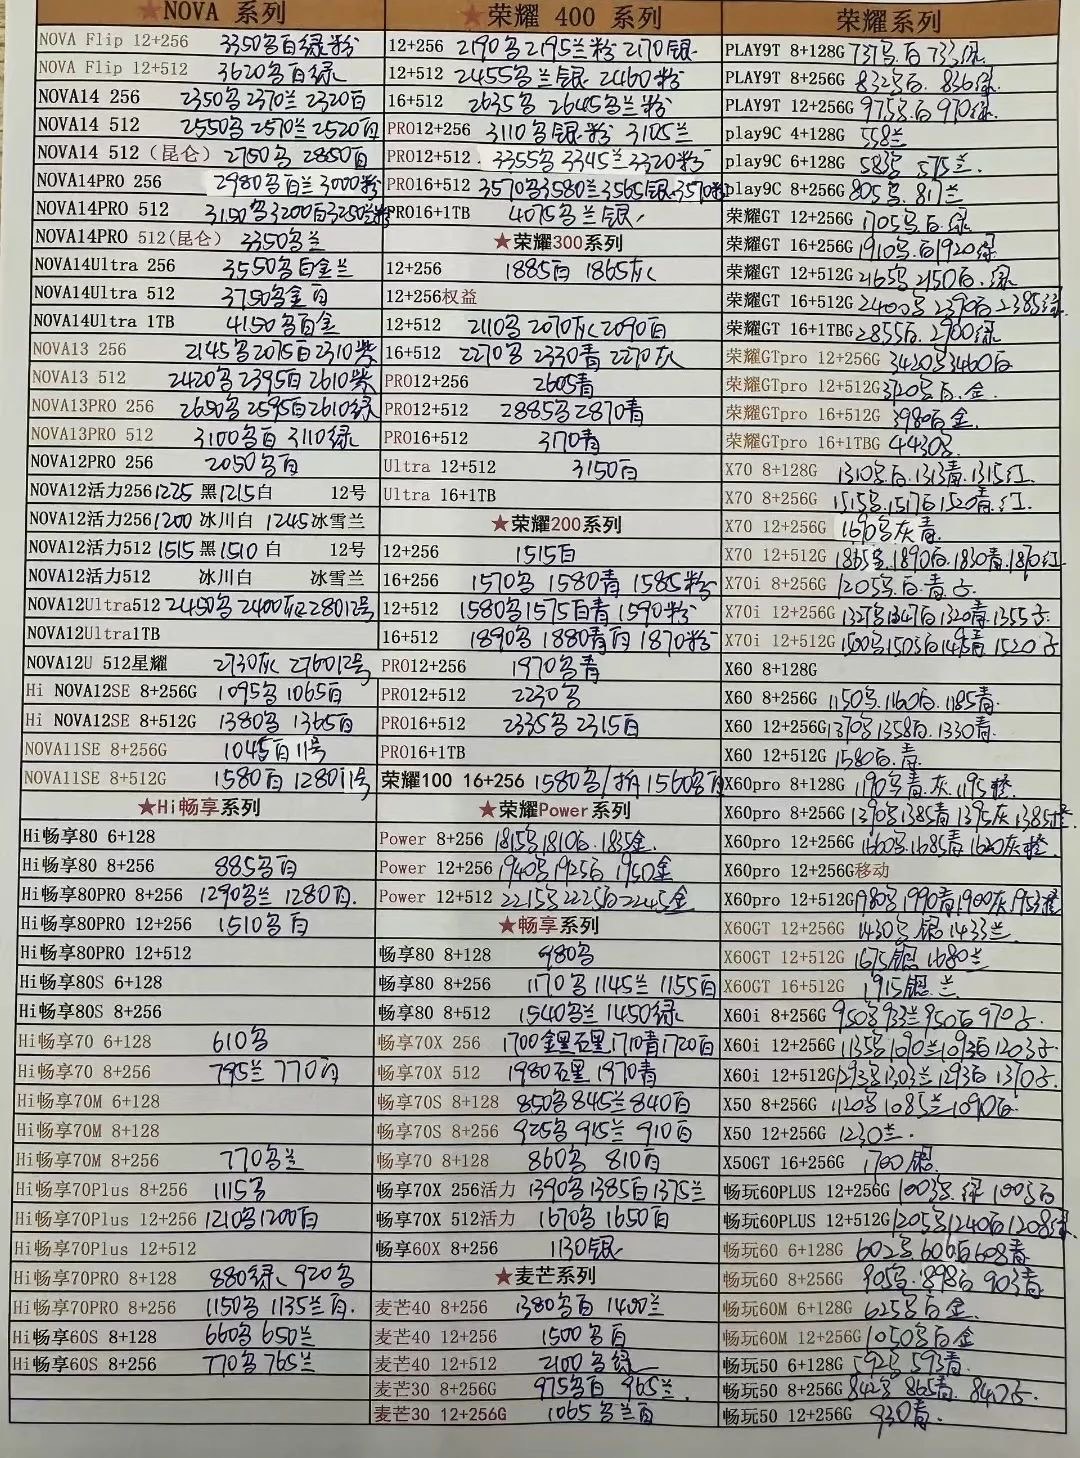 ★NOVA 系列
NOVA Flip 12+256 3350名白绿粉
NOVA Flip 12+512 3620名白绿
NOVA14 256 2350名2370兰2320白
NOVA14 512 2550名2570兰2520白
NOVA14 512（昆仑）2750名 2850白
NOVA14PRO 256 2980名白兰3000粉
NOVA14PRO 512 3150名3200白3250兰粉
NOVA14PRO 512(昆仑) 3350名兰
NOVA14Ultra 256 3550名白金兰
NOVA14Ultra 512 3750名金白
NOVA14Ultra 1TB 4150名白金
NOVA13 256 2145名2075白2310紫
NOVA13 512 2420名2395白2610紫
NOVA13PRO 256 2650名2595白2610绿
NOVA13PRO 512 3100名白3110绿
NOVA12PRO 256 2050名白
NOVA12活力256 1225 黑1215白 12号
NOVA12活力256 1200 冰川白 1245冰雪兰
NOVA12活力512 1515黑1510 白 12号
NOVA12活力512 冰川白 冰雪兰
NOVA12Ultra512 2450名2400灰280012号
NOVA12Ultra1TB
NOVA12U 512星耀 2730灰 276012号
Hi NOVA12SE 8+256G 1095名1065白
Hi NOVA12SE 8+512G 1380名 1365白
NOVA11SE 8+256G 1045白11号
NOVA11SE 8+512G 1580白 128011号
★Hi畅享系列
Hi畅享80 6+128
Hi畅享80 8+256 885名白
Hi畅享80PRO 8+256 1290名兰 1280白.
Hi畅享80PRO 12+256 1510名白
Hi畅享80PRO 12+512
Hi畅享80S 6+128
Hi畅享80S 8+256
Hi畅享70 6+128 610名
Hi畅享70 8+256 795兰 770白
Hi畅享70M 6+128
Hi畅享70M 8+128
Hi畅享70M 8+256 770名兰
Hi畅享70Plus 8+256 1115名
Hi畅享70Plus 12+256 1210名1200白
Hi畅享70Plus 12+512
Hi畅享70PRO 8+128 880绿、920名
Hi畅享70PRO 8+256 1150名 1135兰白.
Hi畅享60S 8+128 660名 650兰
Hi畅享60S 8+256 770名765兰
★荣耀 400 系列
12+256 2190名2195兰粉2170银
12+512 2455名兰银2460粉
16+512 2635名 2645名兰粉
PRO12+256 3110名银粉 3105兰
PRO12+512. 3355名3345兰3320粉
PRO16+512 3570名3580兰3565银3570粉
PRO16+1TB 4075名兰银
★荣耀300系列
12+256 1885白 1865灰
12+256权益
12+512 2110名2070灰2090白
16+512 2270名2330青2270灰
PRO12+256 2605青
PRO12+512 2885名2870青
PRO16+512 3170青
Ultra 12+512 3150白
Ultra 16+1TB
★荣耀200系列
12+256 1515白
16+256 1570名 1580青 1585粉
12+512 1580名1575白青1590粉
16+512 1890名1880青白1870粉
PRO12+256 1970名青
PRO12+512 2230名
PRO16+512 2335名2315白
PRO16+1TB
荣耀100 16+256 1580名/拆1560名白
★荣耀Power系列
Power 8+256 1815名1810白.1835金.
Power 12+256 1940名1925白1950金
Power 12+512 2215名2225白2245金
★畅享系列
畅享80 8+128 980名
畅享80 8+256 1170名1145兰1155白
畅享80 8+512 1540名兰1450绿
畅享70X 256 1700金黑石黑1710青1720白
畅享70X 512 1980石黑1970青
畅享70S 8+128 850名845兰840白
畅享70S 8+256 925名 915兰 910白
畅享70 8+128 860名 810白
畅享70X 256活力 1390名1385白1375兰
畅享70X 512活力 1670名1650白
畅享60X 8+256 1130银
★麦芒系列
麦芒40 8+256 1380名白1400兰
麦芒40 12+256 1500名白
麦芒40 12+512 2100名绿
麦芒30 8+256G 975名白 965兰.
麦芒30 12+256G 1065名兰白
荣耀系列
PLAY9T 8+128G 737名.白733绿.
PLAY9T 8+256G 832名白. 836绿
PLAY9T 12+256G 975名.白970绿.
play9C 4+128G 558兰
play9C 6+128G 583名 575兰.
play9C 8+256G 805名.817兰
荣耀GT 12+256G 1705名白.绿
荣耀GT 16+256G 1910名.白1920绿
荣耀GT 12+512G 2165名2150白.绿
荣耀GT 16+512G 2400名2390白2385绿.
荣耀GT 16+1TBG 2855白.2900绿.
荣耀GTpro 12+256G 3420名3460白
荣耀GTpro 12+512G 3720名白.金.
荣耀GTpro 16+512G 3980白金.
荣耀GTpro 16+1TBG 4430名.
X70 8+128G 1310名白.1313青.1315红.
X70 8+256G 1515名.1517白1520青.红.
X70 12+256G 1690名灰青.
X70 12+512G 1865名.1890白.1830青.1870红
X70i 8+256G 1205名.白.青.子
X70i 12+256G 1327名1347白1320青.1355子
X70i 12+512G 1500名1505白1495青1520子
X60 8+128G
X60 8+256G 1150名.1160白.1185青
X60 12+256G 1370名1358白.1330青.
X60 12+512G 1580白.青.
X60pro 8+128G 1190名青.灰.1195橙.
X60pro 8+256G 1390名1385青1395灰1385橙.
X60pro 12+256G 1660名.1685青1620灰橙.
X60pro 12+256G移动
X60pro 12+512G 1980名1990青1900灰1953橙
X60GT 12+256G 1430名银1433兰.
X60GT 12+512G 1675银.1680兰
X60GT 16+512G 1915银.兰.
X60i 8+256G 950名933兰950白970子.
X60i 12+256G 1135名1090兰1093白1203子.
X60i 12+512G 1293名1303兰1293白1370子.
X50 8+256G 1120名1085兰1090白.
X50 12+256G 1230兰.
X50GT 16+256G 1700银.
畅玩60PLUS 12+256G 1003名.绿1005白
畅玩60PLUS 12+512G 1205名1240白1208绿.
畅玩60 6+128G 602名.606白608青
畅玩60 8+256G 905名.898白903青
畅玩60M 6+128G 625名白金.
畅玩60M 12+256G 1050名白金
畅玩50 6+128G 592名593青.
畅玩50 8+256G 842名865青.840子.
畅玩50 12+256G 930青.